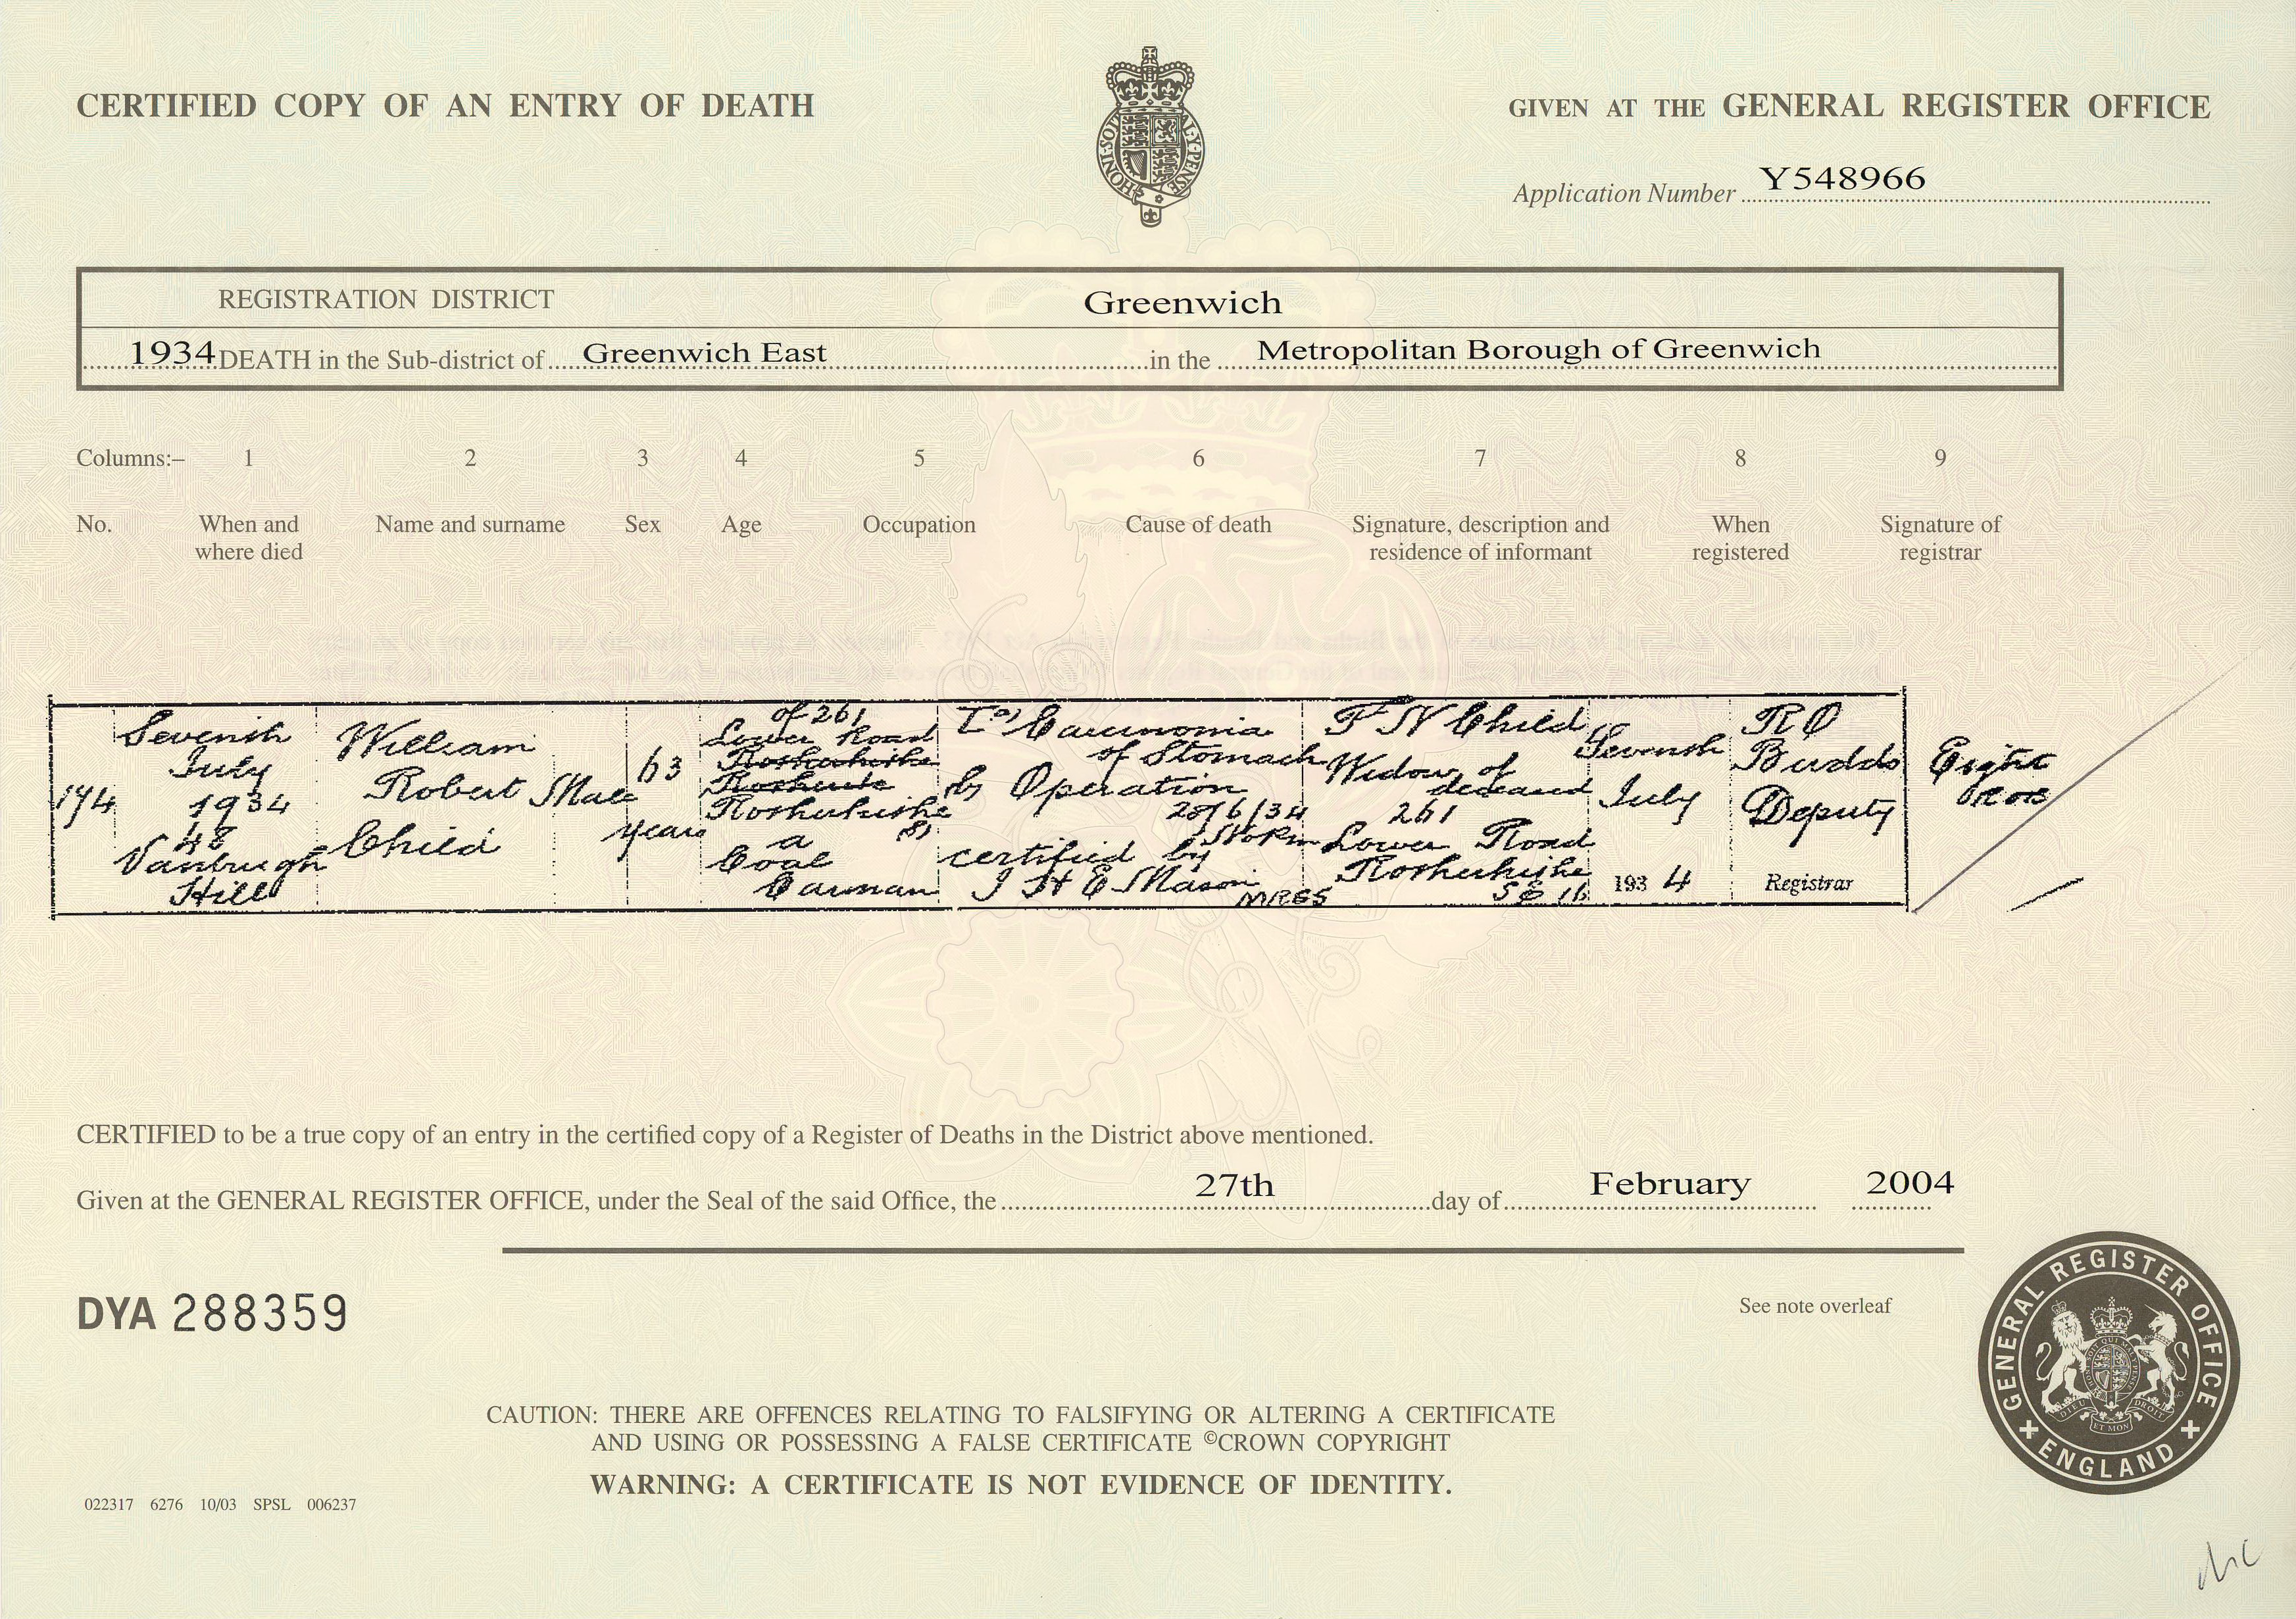 CERTIFIED COPY OF AN ENTRY OF DEATH
GIVEN AT THE GENERAL REGISTER OFFICE
HONI SOIT Y PENSE
Application Number Y548966
REGISTRATION DISTRICT Greenwich
1934 DEATH in the Sub-district of Greenwich East in the Metropolitan Borough of Greenwich
Columns:– 1 2 3 4 5 6 7 8 9
No. When and where died Name and surname Sex Age Occupation Cause of death Signature, description and residence of informant When registered Signature of registrar
174
Seventh
July
1934
48
Vanbrugh
Hill
William
Robert
Child
Male
63
years
of 261
Lower Road
Rotherhithe
a
Coal
Carman
I a) Carcinoma
of Stomach
b) Operation
28/6/34
certified by
J H E Mason
MRCS
F N Child
Widow of
deceased
261
Lower Road
Rotherhithe
SE 16
Seventh
July
1934
R O
Budds
Deputy
Registrar
Eight
ROB
CERTIFIED to be a true copy of an entry in the certified copy of a Register of Deaths in the District above mentioned.
Given at the GENERAL REGISTER OFFICE, under the Seal of the said Office, the 27th day of February 2004
DYA 288359
See note overleaf
GENERAL REGISTER OFFICE
ENGLAND
DIEU ET MON DROIT
CAUTION: THERE ARE OFFENCES RELATING TO FALSIFYING OR ALTERING A CERTIFICATE
AND USING OR POSSESSING A FALSE CERTIFICATE ©CROWN COPYRIGHT
WARNING: A CERTIFICATE IS NOT EVIDENCE OF IDENTITY.
022317 6276 10/03 SPSL 006237